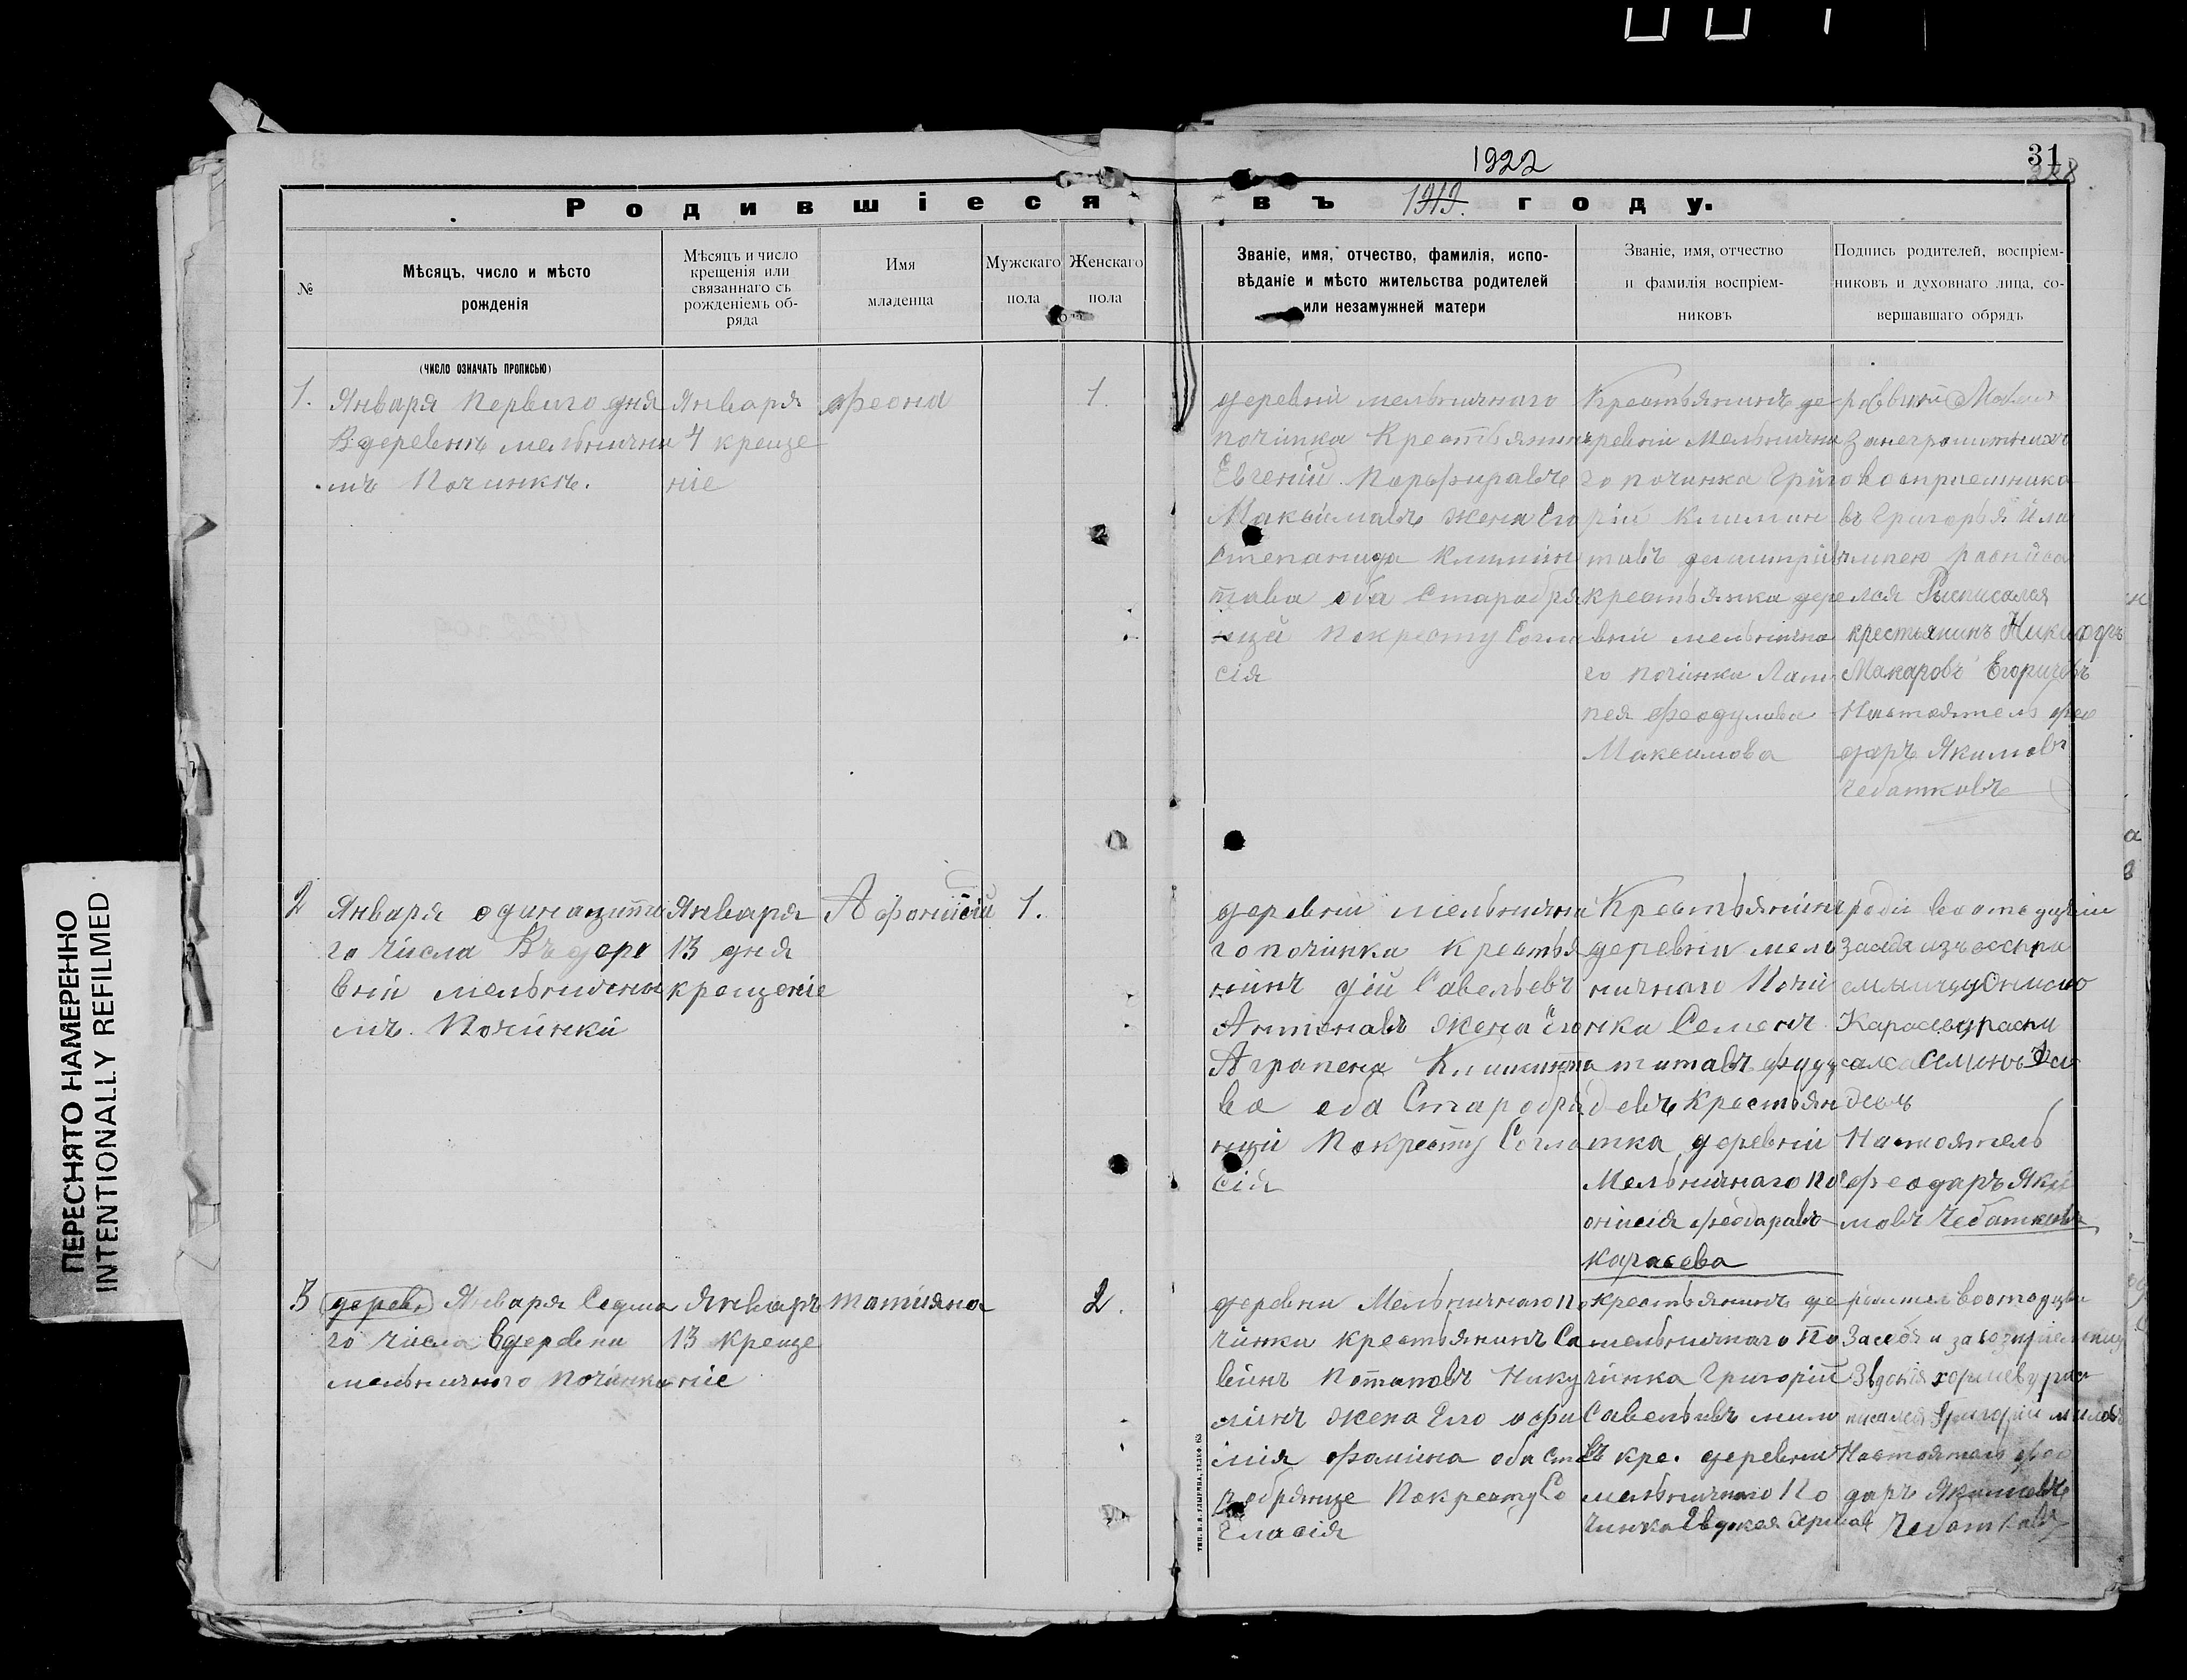 1922
31
288
Родившіеся въ 1919. году.
№
Мѣсяцъ, число и мѣсто
рожденія
Мѣсяцъ и число
крещенія или
связаннаго съ
рожденіемъ об-
ряда
Имя
младенца
Мужскаго
пола
Женскаго
пола
Званіе, имя, отчество, фамилія, испо-
вѣданіе и мѣсто жительства родителей
или незамужней матери
Званіе, имя, отчество
и фамилія воспріем-
никовъ
Подпись родителей, воспріем-
никовъ и духовнаго лица, со-
вершавшаго обрядъ
(число означать прописью)
1.
Января первиго дня
В деревнѣ мельнични
мъ Починкѣ.
Января
4 креще
ніе
феона
1.
деревній мельничнаго
починка Крестьянинъ
Евгеній Порфиравъ
Максимавъ жена Его
Степанида Климин
това оба Старобря
нцы Покресту Согла
сія
Крестьянинъ де
ревній Мельнични
го починка Григо
рій Климин
тавъ
крестьянка дере
вній мельнично
го починка Лам
пея Феодулова
Максимова
Воспріемника
въ Григорья и ла
мпею росписа
лся Росписался
крестьянинъ Никифоръ
Макаровъ Егоричевъ
Настоятель Фео
даръ Якимовъ
Чебатковъ
2
Января одинацита
го числа Въ дере
вній мельнични
мъ Починкй
Января
13 дня
крещеніе
Афонисій
1.
деревній мельнични
го починка крестья
нинъ дій Савельевъ
Антонавъ жена Его
Аграпена Климинта
ва оба Старобря
нцй Покресту Согла
сія
Крестьянинъ
деревніи мель
ничнаго Почи
нка Семенъ
титавъ
девъ крестьян
тка деревній
Мельничнаго По
онисія Феодаравъ
Карасева
Карасеву распи
Настоятель
Феодаръ Яки
мовъ Чебатковъ
3
(дерев) Января Седма
го числа вдеревни
мельничного починка
Январъ
13 креще
ніе
татияна
2.
деревни Мельничнаго по
чинки крестьянинъ Са
винъ Потаповъ Нику
линъ жена Его офи
мия Фомина оба Ста
робрянце Покресту Со
гласія
крестьянинъ де
мельничнаго По
чинка Григорій
Савельивъ мило
въ кре. деревній
мельничнаго По
чинка Евдокея
За себя и за
Настоятель Фео
даръ Якимовъ
Чебатковъ
ТИП. В. Н. ТЕЛЕФ. 63
ПЕРЕСНЯТО НАМЕРЕННО
INTENTIONALLY REFILMED